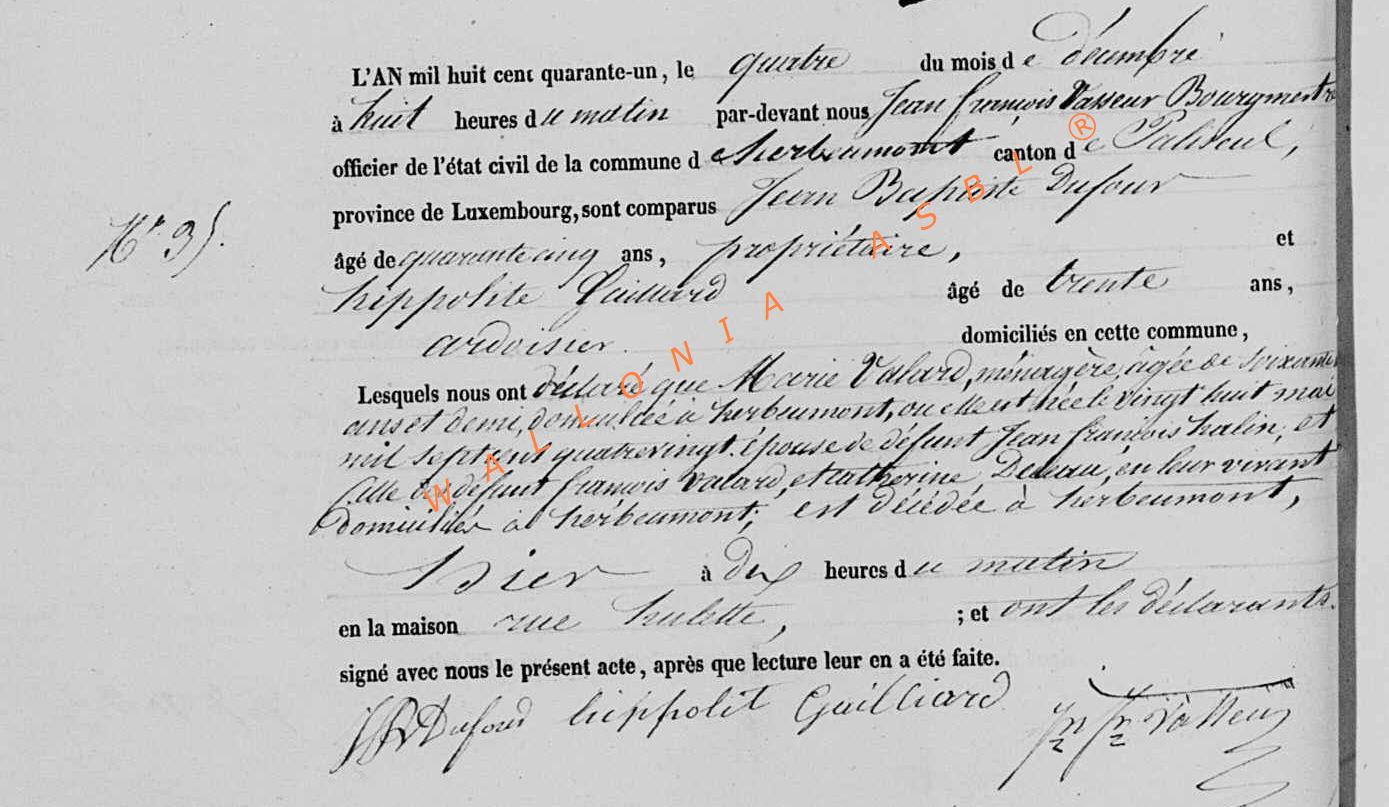 L'AN mil huit cent quarante-un, le quatre du mois de décembre
à huit heures du matin par-devant nous Jean françois Vasseur Bourgmestre
officier de l'état civil de la commune de herbeumont canton de Paliseul,
province de Luxembourg, sont comparus Jean Baptiste Dufour
Nr. 35.
âgé de quarante cinq ans, propriétaire, et
hippolite Gaillard âgé de trente ans,
ardoisier. domiciliés en cette commune,
Lesquels nous ont déclaré que Marie Valard, ménagère, âgée de soixante
ans et demi, domiciliée à herbeumont, ou elle est née le vingt huit mai
mil sept cent quatrevingt. épouse de défunt Jean françois halin, et
fille de défunt françois Valard, et catherine, en leur vivant
domiciliés à herbeumont, est décédée à herbeumont,
hier à dix heures du matin
en la maison rue hulette, ; et ont les déclarants.
signé avec nous le présent acte, après que lecture leur en a été faite.
Dufour hippolit Gailliard Jn fs Vasseur
WALLONIA ASBL ®